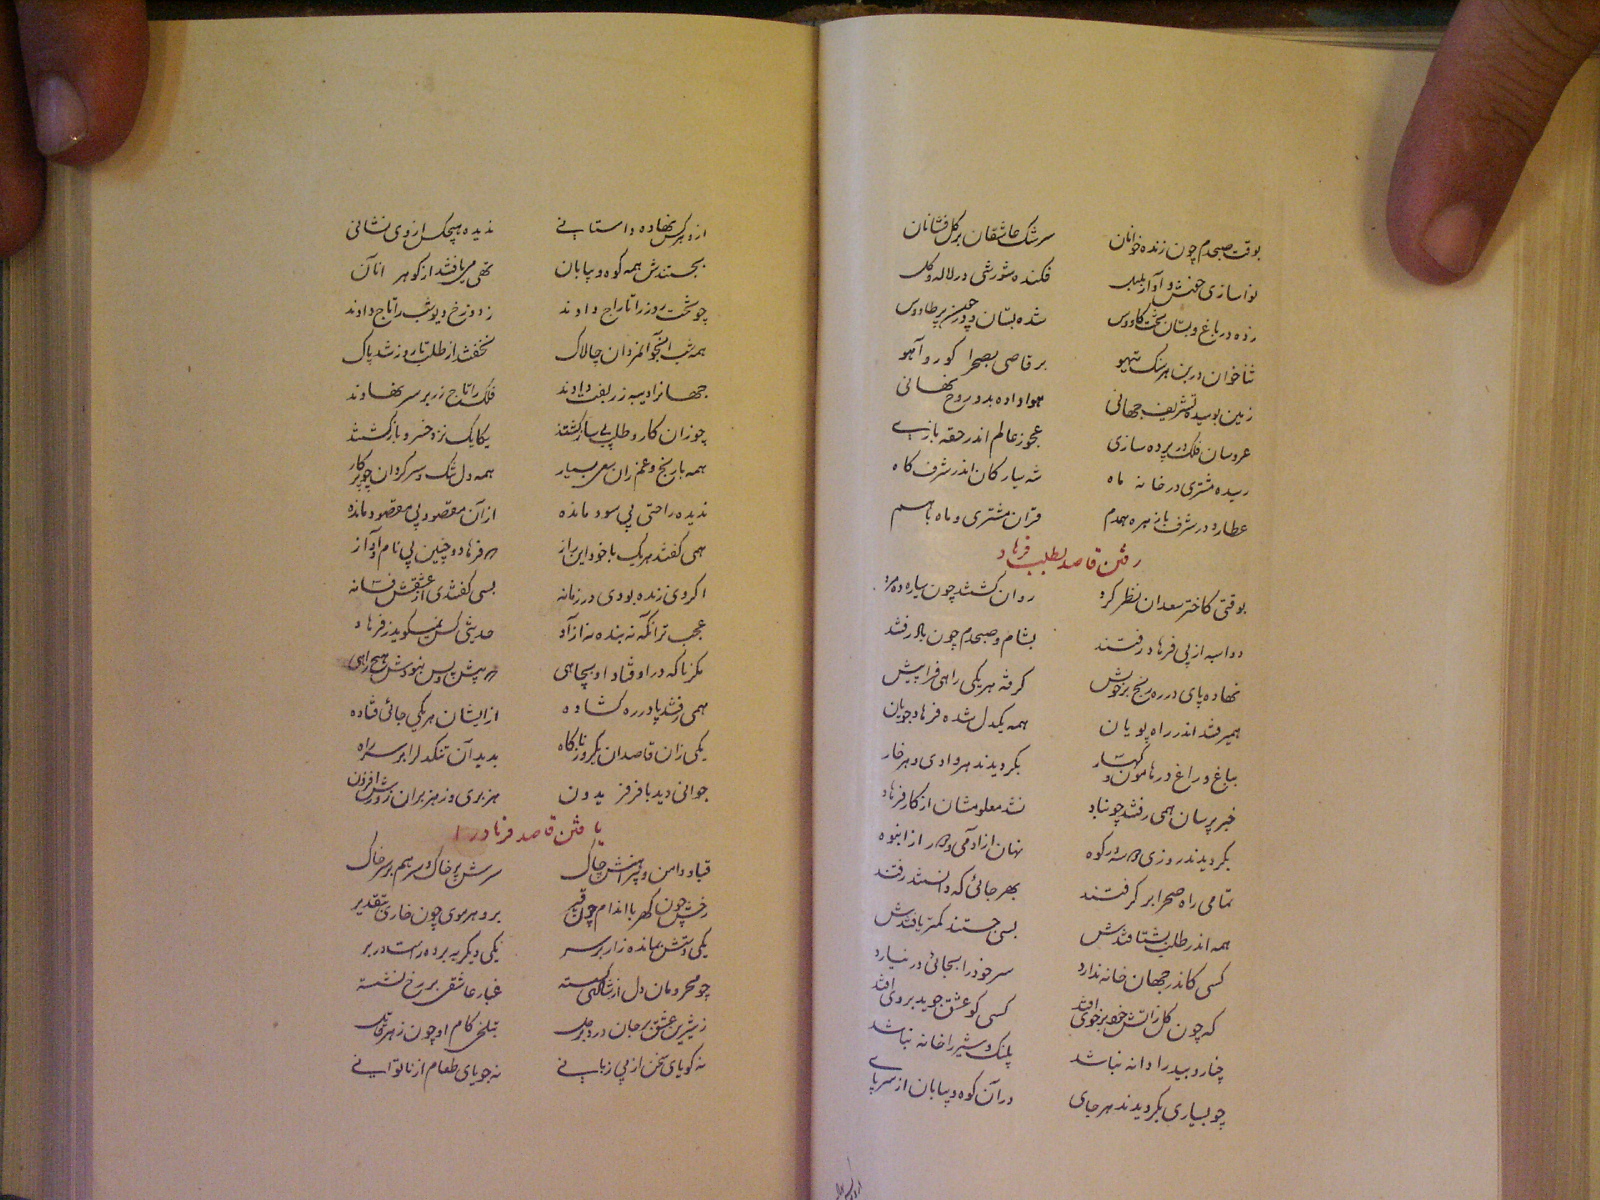 بوقت صبحدم چون زنده خوانان سرشک عاشقان بر گل فشانان
نواسازی خوش و آواز بلبل فکنده شورشی در لاله و گل
زده در باغ و بستان تخت کاوس شده بستان و در چمن پر طاووس
ثناخوان در بن هر سنگ تیهو برقاصی بصحرا گور و آهو
زمین بوسیده تشریف جهانی هوا داده بدو روح نهانی
عروسان فلک در پرده سازی عجوز عالم اندر حقه بازی
رسیده مشتری در خانه ماه شه سیارکان اندر شرف کاه
عطارد در شرف با زهره همدم قران مشتری و ماه با هم
رفتن قاصد بطلب فرهاد
بوقتی کاختر سعدان نظر کرد روان کشتند چون سیاره ده مرد
دواسبه از پی فرهاد رفتند بشام و صبحدم چون باد رفتند
نهاده پای در ره رنج بر خویش کرفته هر یکی راهی فرا پیش
همیرفتند اندر راه پویان همه یکدل شده فرهاد جویان
بباغ و راغ در هامون و کهسار بکردیدند هر وادی و هر خار
خبر پرسان همی رفتند چون باد نشد معلومشان از کار فرهاد
بکردیدند روزی سه در کوه نهان از آدمی و از انبوه
تمامی راه صحرا بر کرفتند بهر جائی که دانستند رفتند
همه اندر طلب بشتافتندش بسی جستند کمتر یافتندش
کسی کاندر جهان خانه ندارد سر خود را بجائی در نیارد
که چون کل زاتش خود بر خوی افتد کسی کو عشق جوید بر وی افتد
چنار و بید را دانه نباشد پلنک و شیر را خانه نباشد
چو بسیاری بکردیدند هر جای در آن کوه و بیابان از سر پای
از و هر کس نهاده داستانی ندیده هیچکس از وی نشانی
بجستندش همه کوه و بیابان تهی می یافتند از کوهر آن کان
چو تخت روز را تاراج دادند ز دوزخ دیو شب را تاج دادند
همه شب آن جوانمردان چالاک نخفتند از طلب تا روز شد پاک
جهانرا دیبه زربفت دادند فلک را تاج زر بر سر نهادند
چو زان کار و طلب بی ساز کشتند یکایک نزد خسرو باز کشتند
همه با رنج و غم زان سعی بسیار همه دل تنک و سر کردان چو پرکار
ندیده راحتی بی سود مانده از آن مقصود بی مقصود مانده
همی کفتند هر یک با خود این راز که فرهاد و چنین بی نام و آواز
اکر وی زنده بودی در زمانه بسی کفتندی از عشقش فسانه
عجب تر آنکه نه بنده نه آزاد حدیثی کس نمیکوید ز فرهاد
مکر ناکه در اوفتاد او بچاهی که پیش و پس نبودش هیچ راهی
همی رفتند پا در ره کشاده از ایشان هر یکی جائی فتاده
یکی زان قاصدان یکروز ناکاه بدید آن تنکدل را بر سر راه
جوانی دید با فر فریدون هزبری وز هزبران زورش افزون
یافتن قاصد فرهاد را
قبا و دامن و پیراهنش چاک سرش پر خاک و سر هم بر سر خاک
رخش چون کهربا اندام چون قیر برو هر موی چون خاری بتقدیر
یکی دستش بمانده زار بر سر یکی دیکر ببرده راست در بر
چو محرومان دل از شادی کسسته غبار عاشقی بر رخ نشسته
ز شیرین عشق بر جان درد بر دل بتلخی کام او چون زهر قاتل
نه کویای سخن از بی زبانی نه جویای طعام از ناتوانی